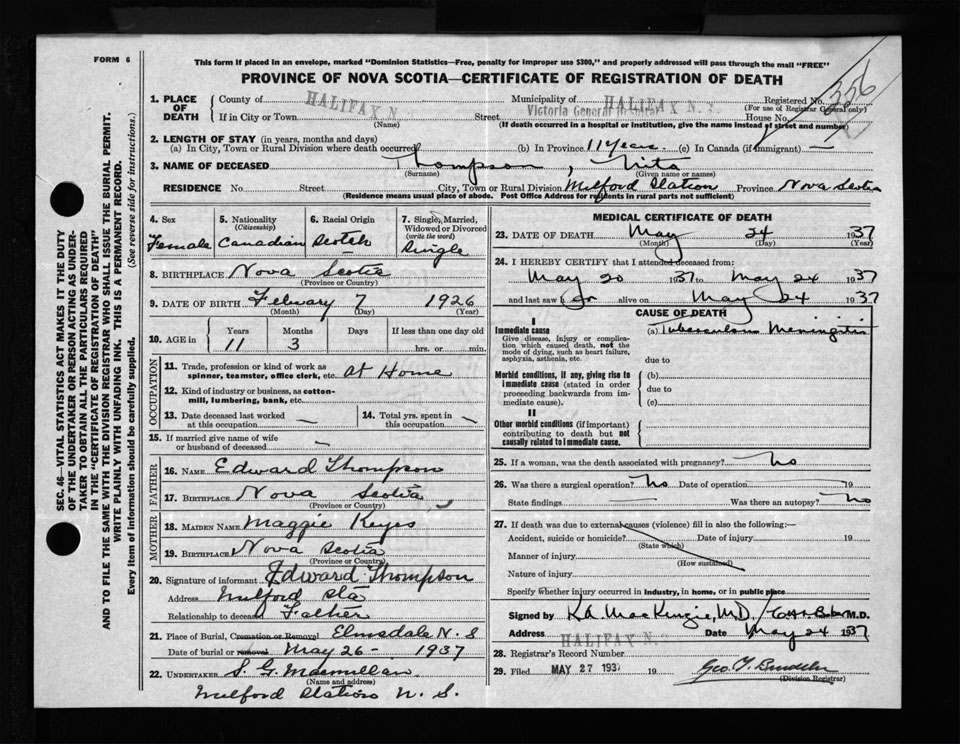 FORM 6
This form if placed in an envelope, marked "Dominion Statistics—Free, penalty for improper use $300," and properly addressed will pass through the mail "FREE"
PROVINCE OF NOVA SCOTIA—CERTIFICATE OF REGISTRATION OF DEATH
336
1. PLACE OF DEATH
County of HALIFAX N. Municipality of HALIFAX N. S. Registered No.
(For use of Registrar General only)
If in City or Town Street Victoria General House No.
(Name) (If death occurred in a hospital or institution, give the name instead of street and number)
2. LENGTH OF STAY (in years, months and days)
(a) In City, Town or Rural Division where death occurred (b) In Province 11 Years. (c) In Canada (if immigrant) —
3. NAME OF DECEASED Thompson, Nita
(Surname) (Given name or names)
RESIDENCE No. Street City, Town or Rural Division Milford Station Province Nova Scotia
(Residence means usual place of abode. Post Office Address for residents in rural parts not sufficient)
4. Sex
Female
5. Nationality
(Citizenship)
Canadian
6. Racial Origin
Scotch
7. Single, Married,
Widowed or Divorced
(write the word)
Single
8. BIRTHPLACE Nova Scotia
(Province or Country)
9. DATE OF BIRTH Febuary 7 1926
(Month) (Day) (Year)
10. AGE in
Years Months Days If less than one day old
11 3 hrs. or min.
OCCUPATION
11. Trade, profession or kind of work as
spinner, teamster, office clerk, etc. at Home
12. Kind of industry or business, as cotton-
mill, lumbering, bank, etc.
13. Date deceased last worked
at this occupation —
14. Total yrs. spent in
this occupation —
15. If married give name of wife
or husband of deceased —
FATHER
16. NAME Edward Thompson
17. BIRTHPLACE Nova Scotia
(Province or Country)
MOTHER
18. MAIDEN NAME Maggie Keyes
19. BIRTHPLACE Nova Scotia
(Province or Country)
20. Signature of informant Edward Thompson
Address Milford Sta
Relationship to deceased Father
21. Place of Burial, Cremation or Removal Elmsdale N. S
Date of burial or removal May 26 - 1937
22. UNDERTAKER S. G. Macmillan
(Name and address)
Milford Station N. S.
MEDICAL CERTIFICATE OF DEATH
23. DATE OF DEATH May 24 1937
(Month) (Day) (Year)
24. I HEREBY CERTIFY that I attended deceased from:
May 20 1937 to May 24 1937
and last saw h er alive on May 24 1937
CAUSE OF DEATH
I
Immediate cause
Give disease, injury or complica-
tion which caused death, not the
mode of dying, such as heart failure,
asphyxia, asthenia, etc.
(a) Tuberculous Meningitis
due to
Morbid conditions, if any, giving rise to
immediate cause (stated in order
proceeding backwards from im-
mediate cause).
(b)
due to
(c)
II
Other morbid conditions (if important)
contributing to death but not
causally related to immediate cause.
25. If a woman, was the death associated with pregnancy? No
26. Was there a surgical operation? No Date of operation 19
State findings — Was there an autopsy? No
27. If death was due to external causes (violence) fill in also the following:—
Accident, suicide or homicide? Date of injury 19
(State which)
Manner of injury
(How sustained)
Nature of injury
Specify whether injury occurred in industry, in home, or in public place
Signed by K.A. MacKenzie, M.D. M.D.
Address HALIFAX N. S. Date May 24 1937
28. Registrar's Record Number
29. Filed MAY 27 1937 19
(Division Registrar)
SEC. 46—VITAL STATISTICS ACT MAKES IT THE DUTY
OF THE UNDERTAKER OR PERSON ACTING AS UNDER-
TAKER TO OBTAIN ALL THE PARTICULARS REQUIRED
IN THE "CERTIFICATE OF REGISTRATION OF DEATH"
AND TO FILE THE SAME WITH THE DIVISION REGISTRAR WHO SHALL ISSUE THE BURIAL PERMIT.
WRITE PLAINLY WITH UNFADING INK. THIS IS A PERMANENT RECORD.
Every item of information should be carefully supplied. (See reverse side for instructions.)